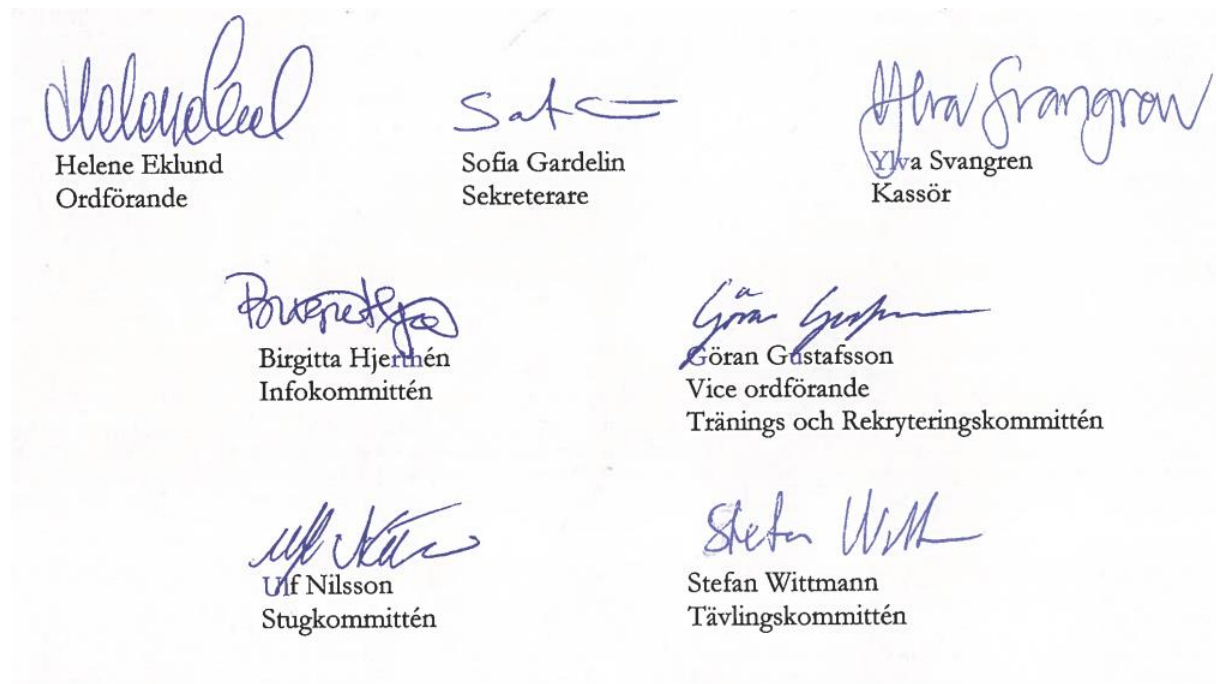 Helene Eklund
Ordförande
Sofia Gardelin
Sekreterare
Ylva Svangren
Ylva Svangren
Kassör
Birgitta Hjerthén
Infokommittén
Göran
Göran Gustafsson
Vice ordförande
Tränings och Rekryteringskommittén
Ulf
Ulf Nilsson
Stugkommittén
Stefan
Stefan Wittmann
Tävlingskommittén